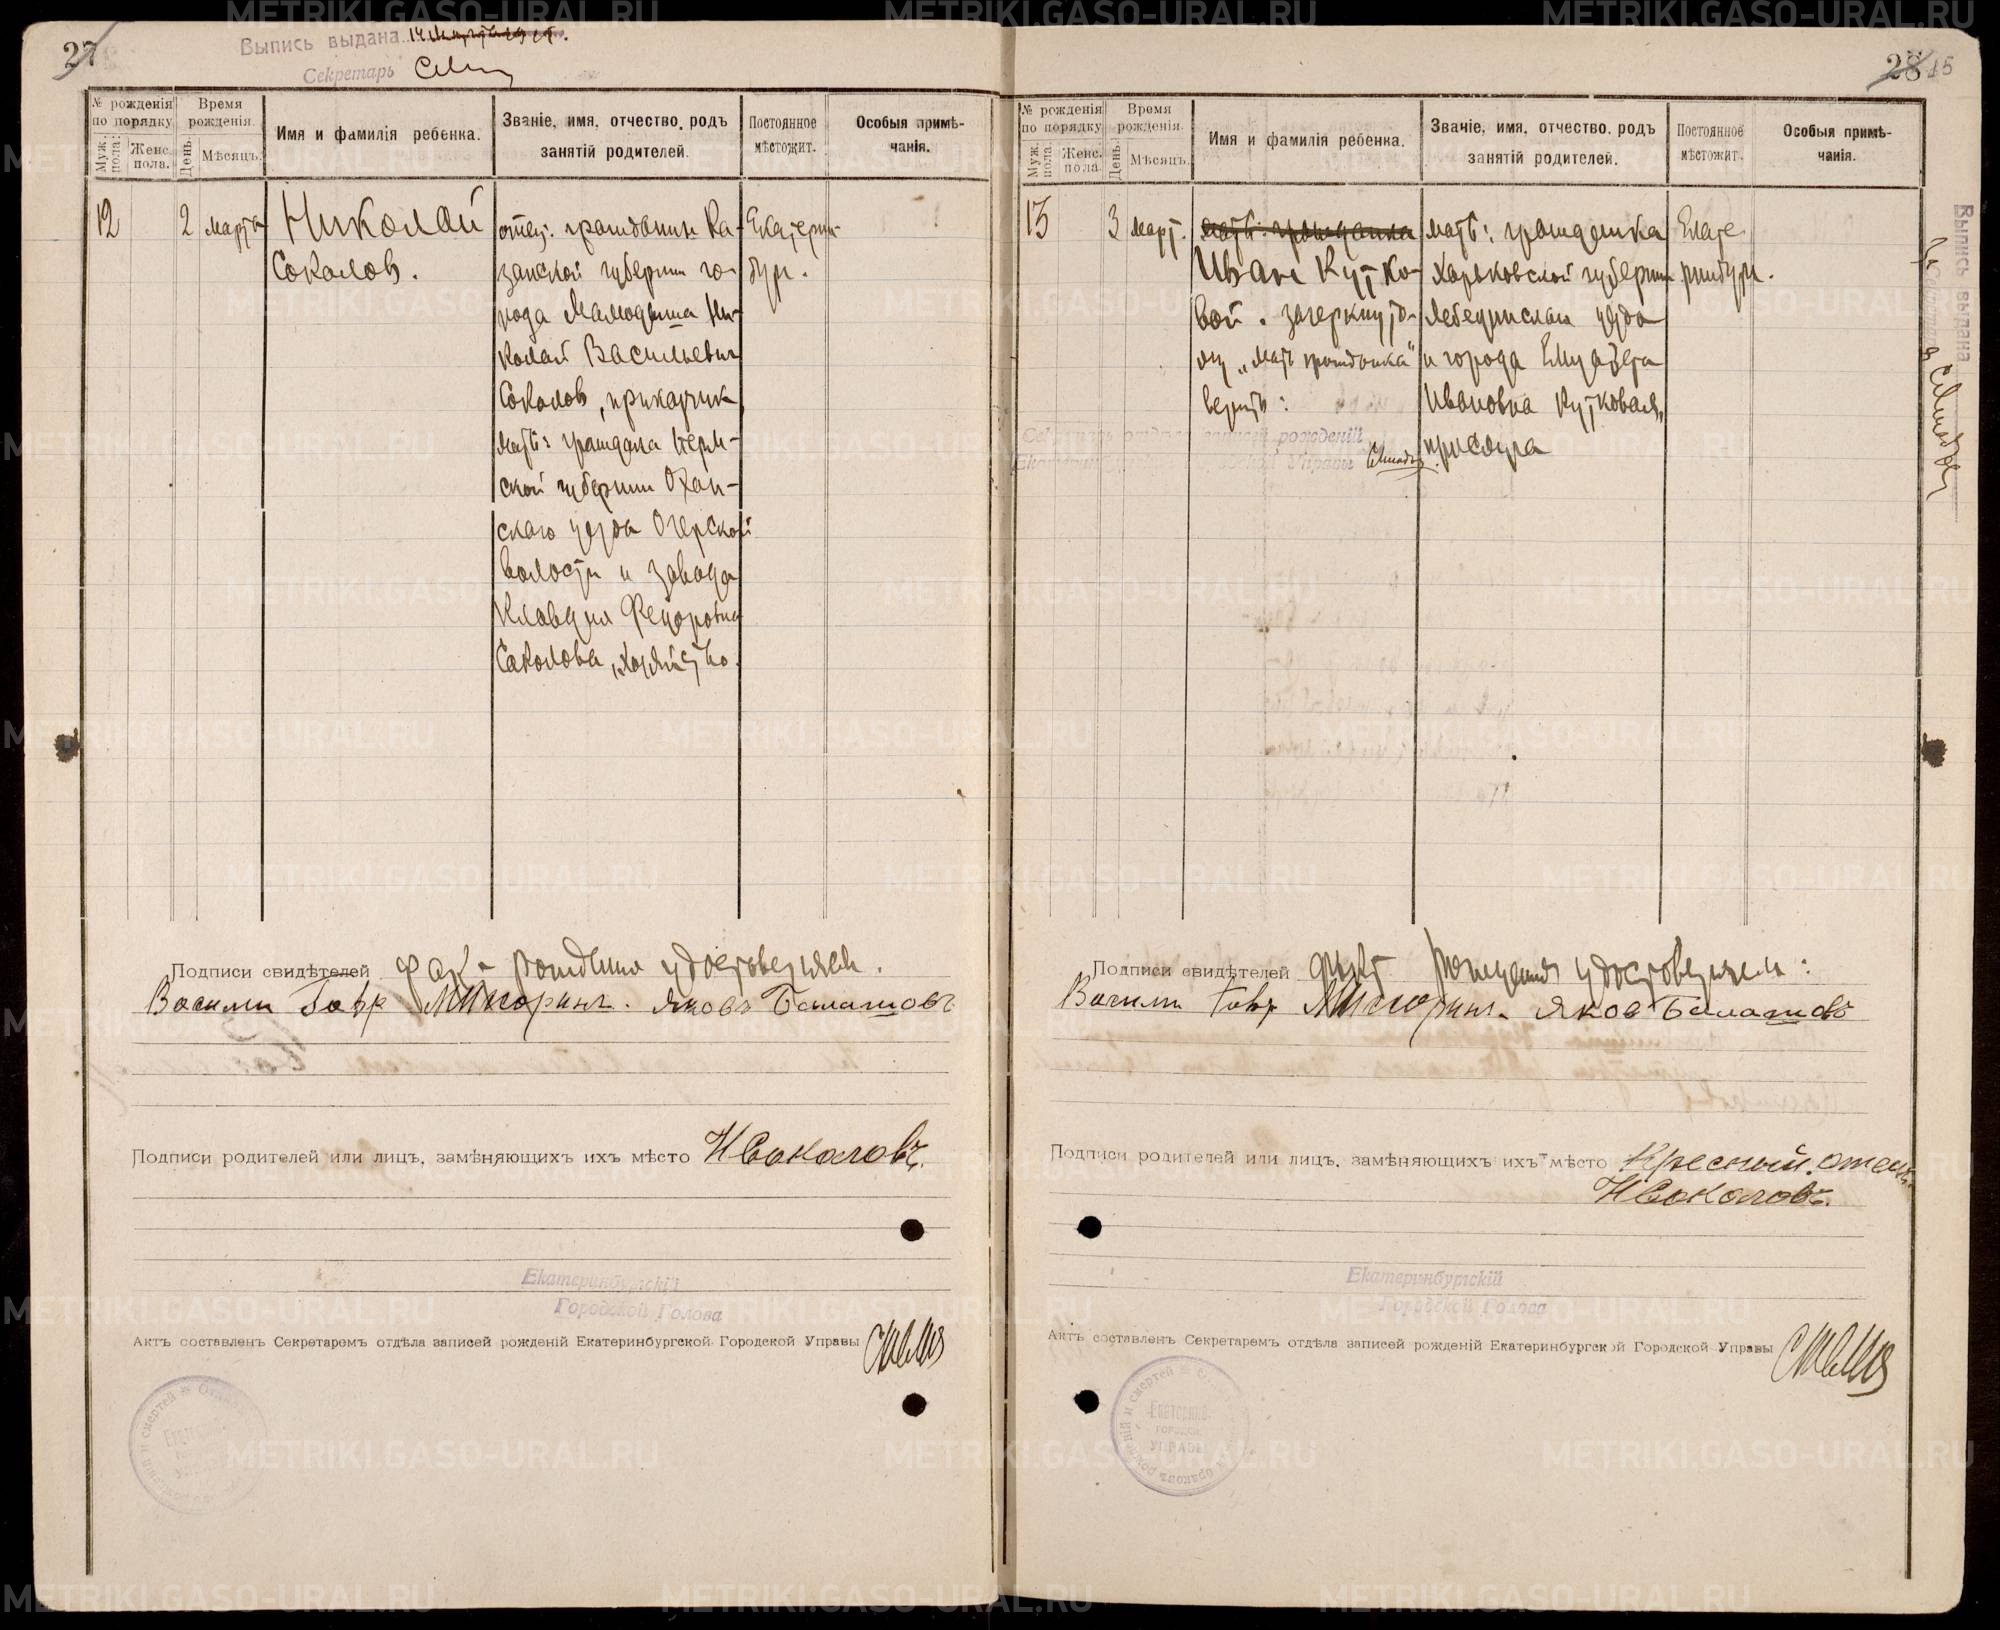 27
Выпись выдана
Секретарь
№ рожденія по порядку
Муж. пола.
Женс. пола.
Время рожденія.
День.
Мѣсяцъ.
Имя и фамилія ребенка.
Званіе, имя, отчество, родъ занятій родителей.
Постоянное мѣстожит.
Особыя примѣчанія.
12
2
марта
Николай
Соколов.
отец: гражданин Ка-
занской губернии го-
рода Мамадыша Ни-
колай Васильевич
Соколов, приказчик,
мать: гражданка Перм-
ской губернии Охан-
скаго уезда Очерской
волости и завода
Клавдия Федоровна
Соколова, хозяйство.
Екатерин-
бург.
Подписи свидѣтелей
рождения удостоверяем.
Василий Гавр Мичюринъ. Яковъ Балашовъ
Подписи родителей или лицъ, замѣняющихъ ихъ мѣсто НСоколовъ.
Екатеринбургскій
Городской Голова
Актъ составленъ Секретаремъ отдѣла записей рожденій Екатеринбургской Городской Управы
28 15
№ рожденія по порядку
Муж. пола.
Женс. пола.
Время рожденія.
День.
Мѣсяцъ.
Имя и фамилія ребенка.
Званіе, имя, отчество, родъ занятій родителей.
Постоянное мѣстожит.
Особыя примѣчанія.
13
3
март.
мать: гражданка
Иван Кутко-
вой. зачеркнуто-
му „мать гражданка"
верить:
Секретарь отдѣла записей рожденій
Екатеринбургской Городской Управы
мать: гражданка
Харьковской губернии
Лебединскаго уезда
и города Елизавета
Ивановна Кутковая,
прислуга
Екате
ринбург.
Выпись выдана
Секретарь
Подписи свидѣтелей факт рождения удостоверяем:
Василий Гавр Мичюринъ. Яков Балашовъ
Подписи родителей или лицъ, замѣняющихъ ихъ мѣсто Кресный отецъ
НСоколовъ.
Екатеринбургскій
Городской Голова
Актъ составленъ Секретаремъ отдѣла записей рожденій Екатеринбургской Городской Управы
METRIKI.GASO-URAL.RU